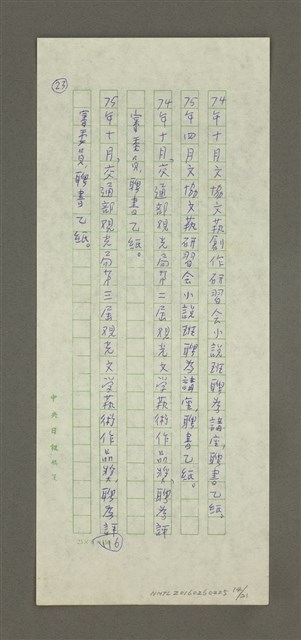 23
74年十月文協文藝創作研習会小説班聘為講座,聘書乙紙。
75年四月文協文藝研習会小説班聘為講座,聘書乙紙。
74年十月,交通部观光局第二屆观光文学藝術作品獎,聘為評
審委員,聘書乙紙。
75年十月,交通部观光局第三屆观光文学藝術作品獎,聘為評
審委員,聘書乙紙。
中央日報
116
NMTL20160260225 14/21